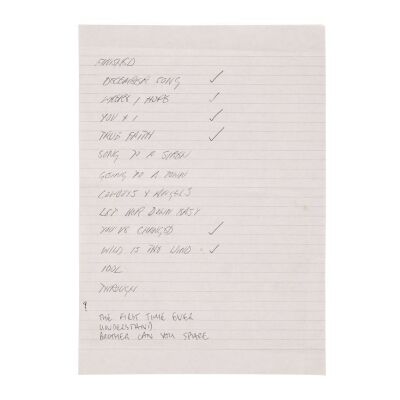 FINISHED
DECEMBER SONG ✓
WHERE I HOPE ✓
YOU & I ✓
TRUE FAITH ✓
SONG TO A SIREN
GOING TO A TOWN
COWBOYS & ANGELS
LET HER DOWN EASY
YOU'VE CHANGED ✓
WILD IS THE WIND - ✓
IDOL
THROUGH
?
THE FIRST TIME EVER
UNDERSTAND
BROTHER CAN YOU SPARE